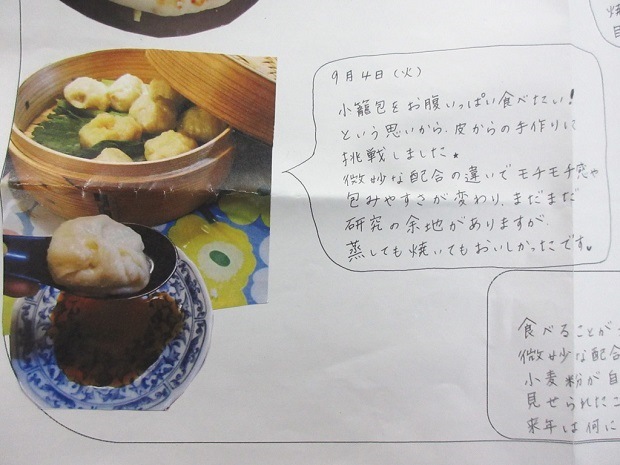 9月4日(火)
小籠包をお腹いっぱい食べたい!
という思いから、皮からの手作りに
挑戦しました。
微妙な配合の違いでモチモチ感や
包みやすさが変わり、まだまだ
研究の余地がありますが、
蒸しても焼いてもおいしかったです。
食べることが
微妙な配合
小麦粉が自
見せられたこ
来年は何に
焼
目